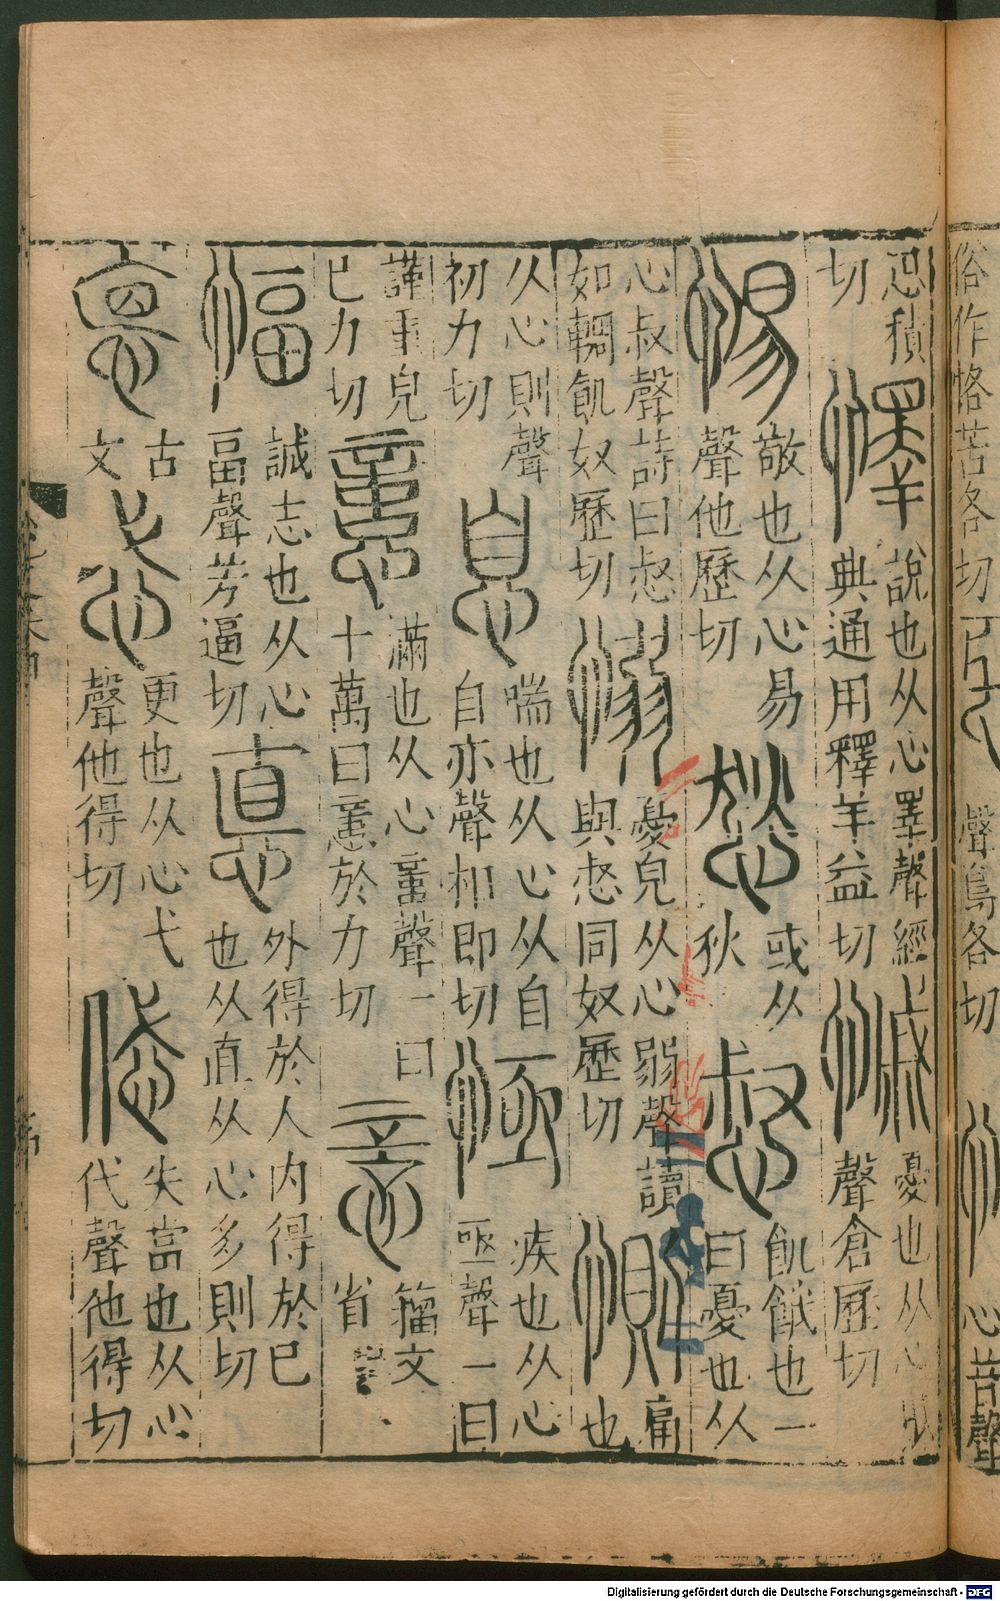 俗作恪苦各切
聲烏各切
心昔聲
忍積
切
懌
說也从心睪聲經
典通用釋羊益切
慽
憂也从心戚
聲倉歷切
惕
敬也从心易
聲他歷切
悐
或从
狄
惄
飢餓也一
曰憂也从
心叔聲詩曰惄
如輖飢奴歷切
愵
憂皃从心弱聲讀
與惄同奴歷切
惻
痛
也
从心則聲
初力切
息
喘也从心从自
自亦聲相即切
㥛
疾也从心
亟聲一曰
謹重皃
己力切
𢡃
滿也从心𡔡聲一曰
十萬曰𢡃於力切
籒文
省
愊
誠志也从心
畐聲芳逼切
悳
外得於人內得於己
也从直从心多則切
古
文
忒
更也从心弋
聲他得切
失當也从心
代聲他得切
Digitalisierung gefördert durch die Deutsche Forschungsgemeinschaft - DFG